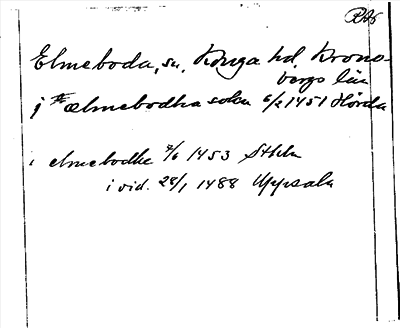 RAB
Elmeboda, sn. Konga hd, Krono-
bergs län
j Ælmebodha sokn 6/2 1451 Hörda
i elmebodhe 4/6 1453 Sthlm
i vid. 28/1 1488 Uppsala